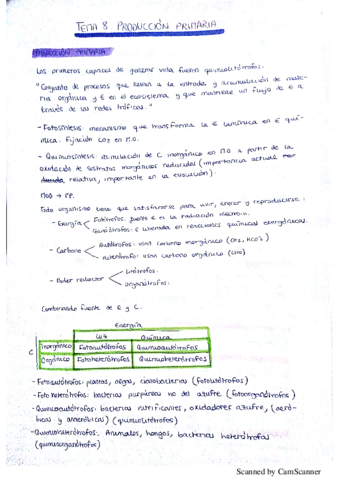 TEMA 8 PRODUCCIÓN PRIMARIA
PRODUCCIÓN PRIMARIA
Los primeros capaces de generar vida fueron quimioautótrofos.
"Conjunto de procesos que llevan a la entrada y acumulación de mate-
ria orgánica y E en el ecosistema y que mantiene un flujo de E a
través de las redes tróficas."
- Fotosíntesis: mecanismo que transforma la E lumínica en E quí-
mica. Fijación CO2 en M.O.
- Quimiosíntesis: asimilación de C inorgánico en M.O a partir de la
oxidación de sustratos inorgánicos reducidos (importancia actual
relativa, importante en la evolución).
→ PP.
Todo organismo tiene que satisfacerse para vivir, crecer y reproducirse:
- Energía
Fotótrofos: fuente E es la radiación
Quimiótrofos: E liberada en reacciones químicas exergónicas.
- Carbono
Autótrofos: usan carbono inorgánico (CO2, HCO3-)
Heterótrofo: usan carbono orgánico (CHO)
- Poder reductor
Litótrofos.
Organótrofos.
Combinando fuente de E y C.
Energía
Luz Química
C
Inorgánico Fotoautótrofos Quimioautótrofos
Orgánico Fotoheterótrofos Quimioheterótrofos
- Fotoautótrofos: plantas, algas, cianobacterias (fotolitótrofos)
- Fotoheterótrofos: bacterias purpúreas no del azufre (fotoorganótrofos)
- Quimioautótrofos: bacterias nitrificantes, oxidadores azufre, (aeró-
bicas y anaeróbicas) (quimiolitótrofos)
- Quimioheterótrofos: Animales, hongos, bacterias heterótrofas
(quimiorganótrofos)
Scanned by CamScanner